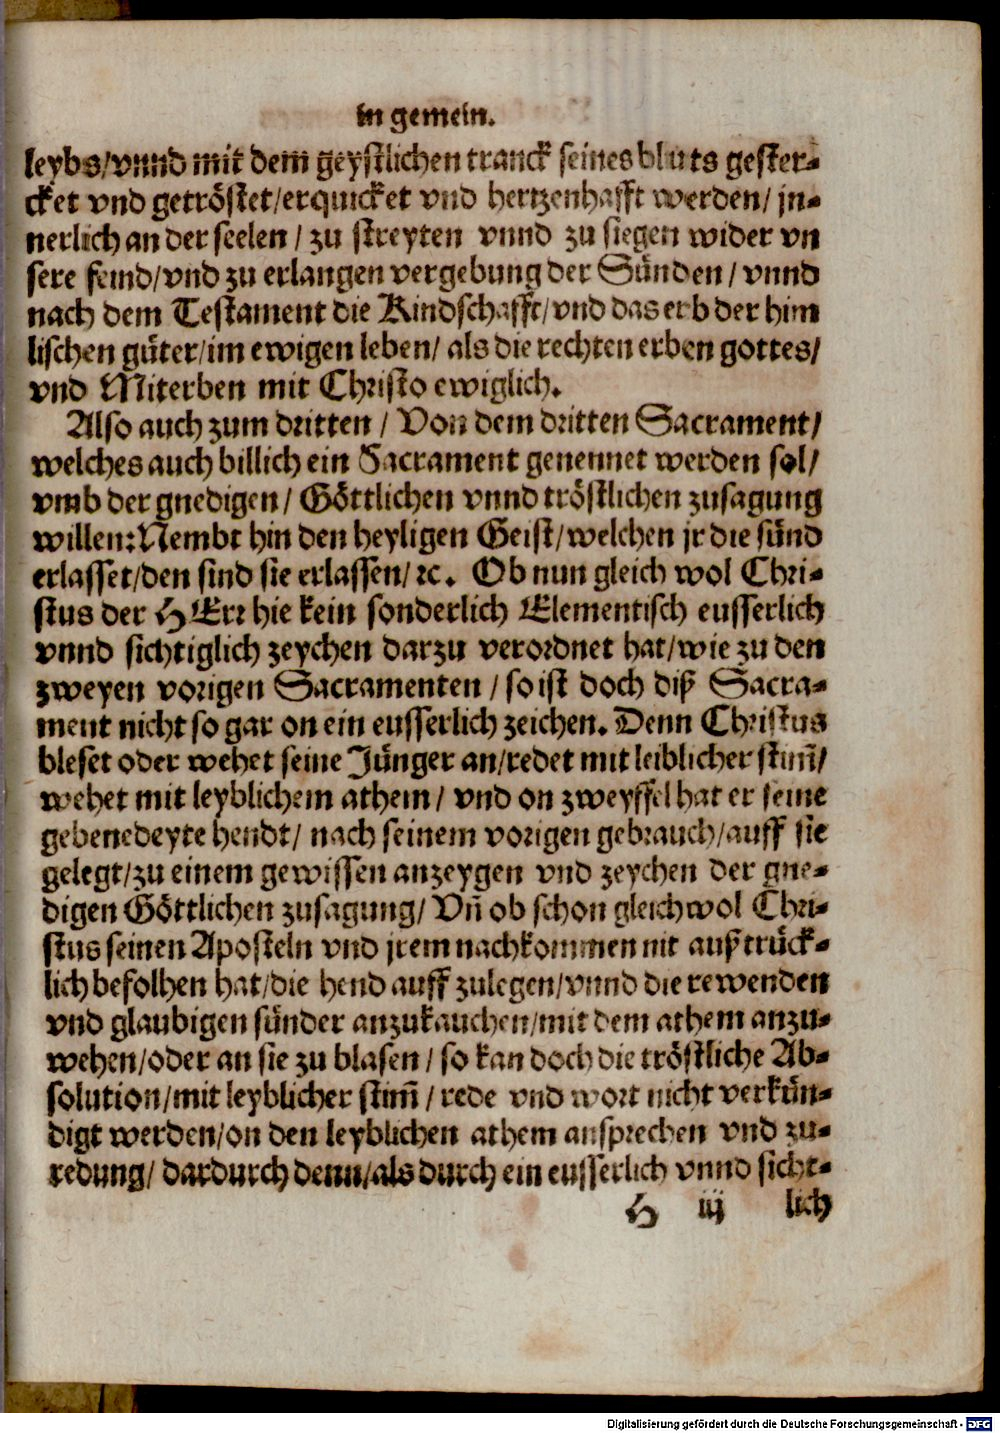 in gemein.
leybs/vnnd mit dem geystlichen tranck seines bluts gester-
cket vnd getröstet/erquicket vnd hertzenhafft werden/ jn-
nerlich an der seelen / zu streyten vnnd zu siegen wider vn
sere feind/vnd zu erlangen vergebung der Sünden / vnnd
nach dem Testament die Kindschafft/vnd das erb der him
lischen güter/im ewigen leben/ als die rechten erben gottes/
vnd Miterben mit Christo ewiglich.
Also auch zum dritten / Von dem dritten Sacrament/
welches auch billich ein Sacrament genennet werden sol/
vmb der gnedigen / Göttlichen vnnd tröstlichen zusagung
willen: Nembt hin den heyligen Geist/welchen jr die sünd
erlasset/den sind sie erlassen/ ꝛc. Ob nun gleich wol Chri-
stus der HErr hie kein sonderlich Elementisch eusserlich
vnnd sichtiglich zeychen darzu verordnet hat/wie zu den
zweyen vorigen Sacramenten / so ist doch diß Sacra-
ment nicht so gar on ein eusserlich zeichen. Denn Christus
bleset oder wehet seine Jünger an/redet mit leiblicher stim̃/
wehet mit leyblichem athem/ vnd on zweyffel hat er seine
gebenedeyte hendt/ nach seinem vorigen gebrauch/auff sie
gelegt/zu einem gewissen anzeygen vnd zeychen der gne-
digen Göttlichen zusagung/ Vñ ob schon gleichwol Chri-
stus seinen Aposteln vnd jrem nachkommen nit außtrück-
lich befolhen hat/die hend auff zulegen/vnnd die rewenden
vnd glaubigen sünder anzukauchen/mit dem athem anzu-
wehen/oder an sie zu blasen / so kan doch die tröstliche Ab-
solution/mit leyblicher stim̃ / rede vnd wort nicht verkün-
digt werden/on den leyblichen athem ansprechen vnd zu-
redung/ dardurch denn/als durch ein eusserlich vnnd sicht-
H iij lich
Digitalisierung gefördert durch die Deutsche Forschungsgemeinschaft - DFG